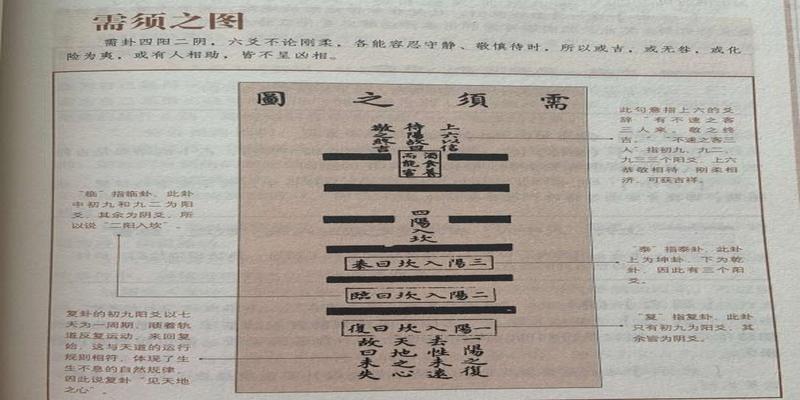 需须之图
需卦四阳二阴，六爻不论刚柔，各能容忍守静、敬慎待时，所以或吉，或无咎，或化
险为夷，或有人相助，皆不呈凶相。
需須之圖
上六以信
待陽故曰
敬之終吉
需食養
而能
四陽入坎
三陽入坎曰泰
二陽入坎曰臨
一陽入坎曰復
一陽之復
去性未遠
天地之心
故曰未失
此句意指上六的爻
辞“有不速之客
三人来，敬之终
吉。”“不速之客三
人”指初九、九二、
九三三个阳爻，上六
恭敬相待，刚柔相
济，可获吉祥。
“临”指临卦，此卦
中初九和九二为阳
爻，其余为阴爻，所
以说“二阳入坎”。
“泰”指泰卦，此卦
上为坤卦，下为乾
卦，因此有三个阳
爻。
复卦的初九阳爻以七
天为一周期，顺着轨
道反复运动，来回复
始，这与天道的运行
规则相符，体现了生
生不息的自然规律，
因此说复卦“见天地
之心”。
“复”指复卦，此卦
只有初九为阳爻，其
余皆为阴爻。